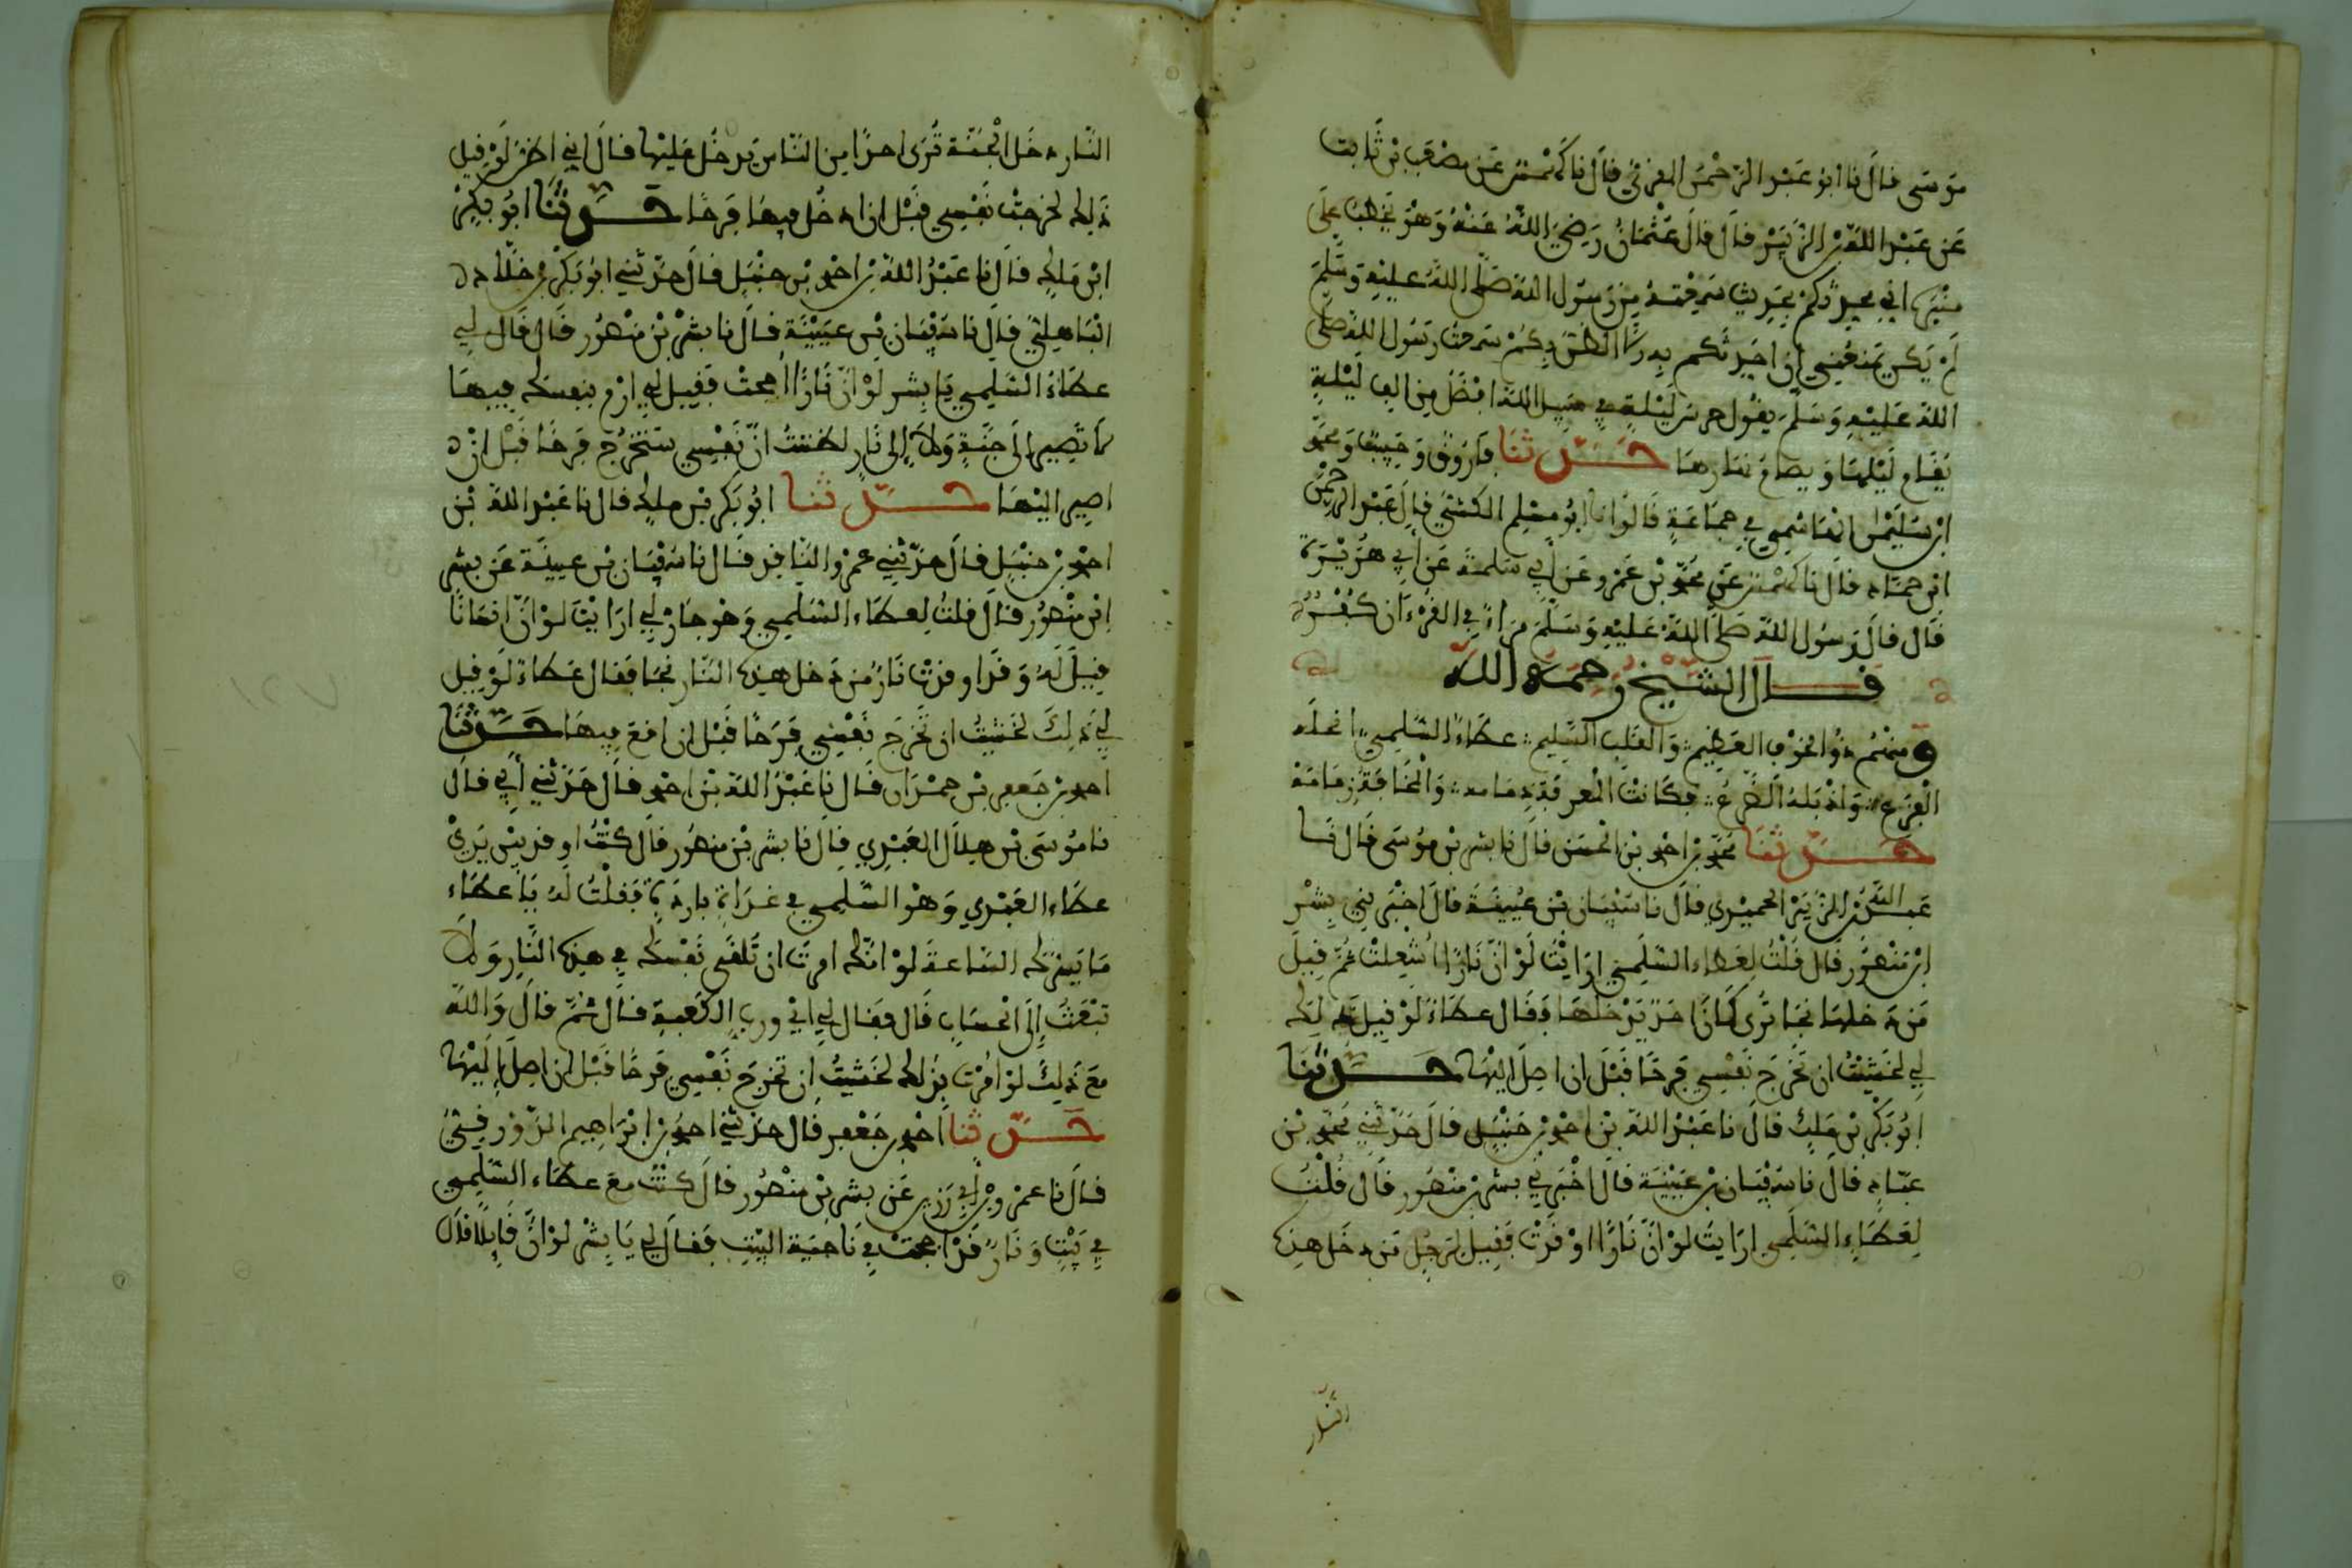 موسى قال نا ابو عبد الرحمن المقرئ قال نا كهمس عن مصعب بن ثابت
عن عبد الله بن الزبير قال قال عثمان رضي الله عنه وهو يخطب على
منبره اني محدثكم بحديث سمعته من رسول الله صلى الله عليه وسلم
لم يكن يمنعني ان احدثكم به الا الظن بكم سمعت رسول الله صلى
الله عليه وسلم يقول حرس ليلة في سبيل الله افضل من الف ليلة
يقام ليلها ويصام نهارها حدثنا فاروق وحبيب ومحمد
ابن سليمن الهاشمي في جماعة قالوا نا ابو مسلم الكشي قال عبد الرحمن
ابن حماد قال نا كهمس عن محمد بن عمرو عن أبي سلمة عن أبي هريرة
قال قال رسول الله صلى الله عليه وسلم مراء في القرءان كفر
قال الشيخ رحمه الله
ومنهم ذو الخوف العظيم والقلب السليم عطاء السليمي انحله
الفزع واذبله الضرع فكانت المعرفة دمامه والمخافة زمامه
حدثنا محمد بن احمد بن الحسن قال نا بشر بن موسى قال نا
عبد الله بن الزبير الحميدي قال نا سفيان بن عيينة قال اخبرني بشر
ابن منصور قال قلت لعطاء السليمي ارايت لو ان نارا اشعلت ثم قيل
من دخلها نجا ترى كان احد يدخلها فقال عطاء لو قيل ذلك
لي لخشيت ان تخرج نفسي فرحا قبل ان اصل اليها حدثنا
ابو بكر بن ملك قال نا عبد الله بن احمد بن حنبل قال حدثني محمد بن
عباد قال نا سفيان بن عيينة قال اخبرني بشر بن منصور قال قلت
لعطاء السليمي ارايت لو ان نارا اوقدت فقيل لرجل من دخل هذه
النار
النار دخل الجنة ترى احدا من الناس يدخل عليها فقال اني اظن لو قيل
ذلك لخرجت نفسي قبل ان ادخل فيها فرحا حدثنا ابو بكر
ابن ملك قال نا عبد الله بن احمد بن حنبل قال حدثني ابو بكر بن خلاد
الباهلي قال نا سفيان بن عيينة قال نا بشر بن منصور قال قال لي
عطاء السليمي يا بشر لو ان نارا اججت فقيل لي ارم بنفسك فيها
لا تصير الى جنة ولا إلى نار لظننت ان نفسي ستخرج فرحا قبل ان
اصير اليها حدثنا ابو بكر بن ملك قال نا عبد الله بن
احمد بن حنبل قال حدثني عمرو الناقد قال نا سفيان بن عيينة عن بشر
ابن منصور قال قلت لعطاء السليمي وهو جار لي ارايت لو ان انسانا
قيل له وقد اوقدت نار من دخل هذه النار نجا فقال عطاء لو قيل
لي ذلك لخشيت ان تخرج نفسي فرحا قبل ان اقع فيها حدثنا
احمد بن جعفر بن حمدان قال نا عبد الله بن احمد قال حدثني أبي قال
نا موسى بن هلال العبدي قال نا بشر بن منصور قال كنت اوقد بين يدي
عطاء العبدي وهو السليمي في غداة باردة فقلت له يا عطاء
ما يسرك الساعة لو انك امرت ان تلقي نفسك في هذه النار ولا
تبعث إلى الحساب قال فقال لي اي ورب الكعبة قال ثم قال والله
مع ذلك لو امرت بذلك لخشيت ان تخرج نفسي فرحا قبل ان اصل إليها
حدثنا احمد بن جعفر قال حدثني احمد بن ابراهيم الدورقي
قال نا عمرو بن أبي رزين عن بشر بن منصور قال كنت مع عطاء السليمي
في بيت ونار قد اججت في ناحية البيت فقال لي يا بشر لو ان قايلا قال